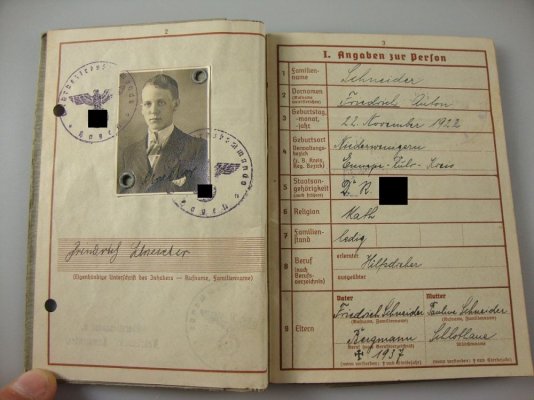 2
Friedrich Schneider
(Eigenhändige Unterschrift des Inhabers — Rufname, Familienname)
3
I. Angaben zur Person
1
Familien-
name
Schneider
2
Vornamen
(Rufname
unterstreichen)
Friedrich
3
Geburtstag,
-monat,
-jahr
22. November 1922
4
Geburtsort
Verwaltungs-
bezirk
(z. B. Kreis,
Reg. Bezirk)
Niederwenigern
Ennepe-Ruhr-Kreis
5
Staatsan-
gehörigkeit
(auch frühere)
D. R.
6
Religion
Kath
7
Familien-
stand
ledig
8
Beruf
(nach
Berufs-
verzeichnis)
erlernter
Hilfsdreher
ausgeübter
9
Eltern
Vater
Mutter
Friedrich Schneider
Pauline Schneider
(Rufname, Familienname)
(Rufname, Familienname)
Bergmann
Mädchenname
1937
(wenn verstorben: † und Sterbejahr)
(wenn verstorben: † und Sterbejahr)